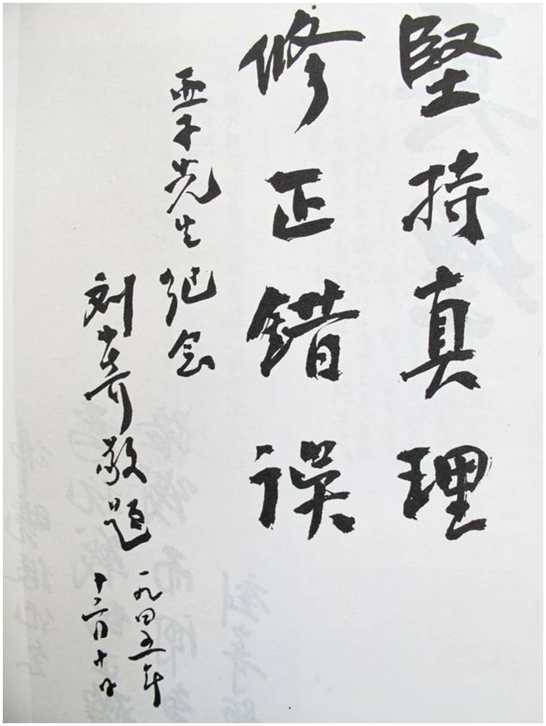 堅持真理
修正錯误
亚子先生纪念
刘少奇敬题
一九四五年
十二月十日